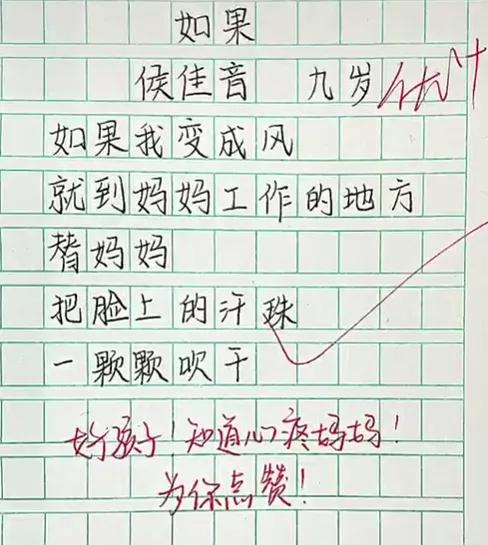 如果
侯佳音 九岁 优+
如果我变成风
就到妈妈工作的地方
替妈妈
把脸上的汗珠
一颗颗吹干
好孩子!知道心疼妈妈!
为你点赞!